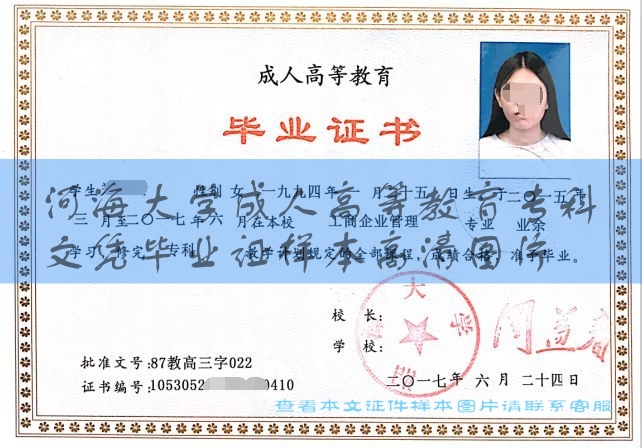 成人高等教育
毕业证书
学生 性别 女,一九九四年 一 月 二十五 日生,于二〇一五年
三 月至二〇一七年 六 月在本校 工商企业管理 专业 业余
学习,修完 专科 教学计划规定的全部课程,成绩合格,准予毕业。
河海大学成人高等教育专科
文凭毕业证样本高清图片
校 长:
学 校:
河海大学
批准文号:87教高三字022
证书编号:1053052 0410
二〇一七年 六 月 二十四日
查看本文证件样本图片请联系客服